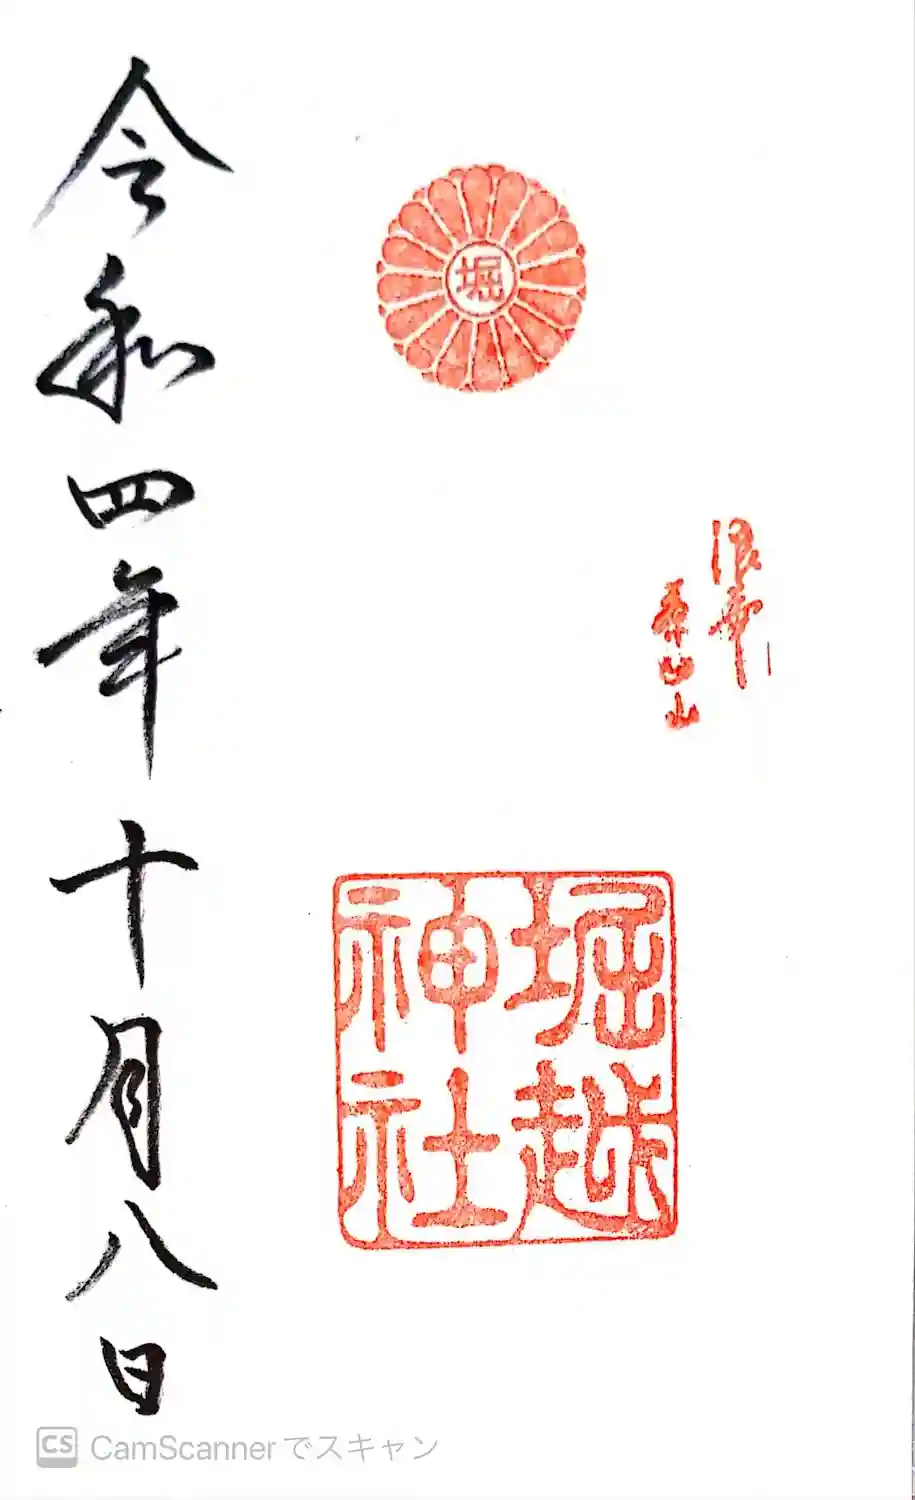 浪華
茶臼山
堀
堀越
神社
令和四年十月八日
CS CamScannerでスキャン